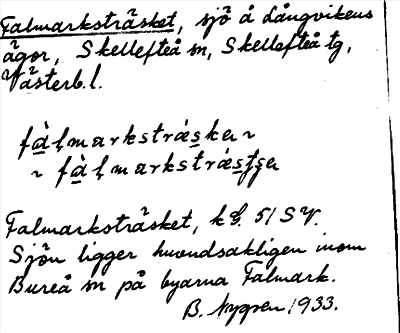 Falmarksträsket, sjö å Långvikens
ägor, Skellefteå sn, Skellefteå tg,
Västerb.l.
fàḷmarkstrǻskeṛ ~
~ fàḷmarkstrǻsʈʂa
Falmarksträsket, k 51 SV.
Sjön ligger huvudsakligen inom
Bureå sn på byarna Falmark.
B. Nygren 1933.